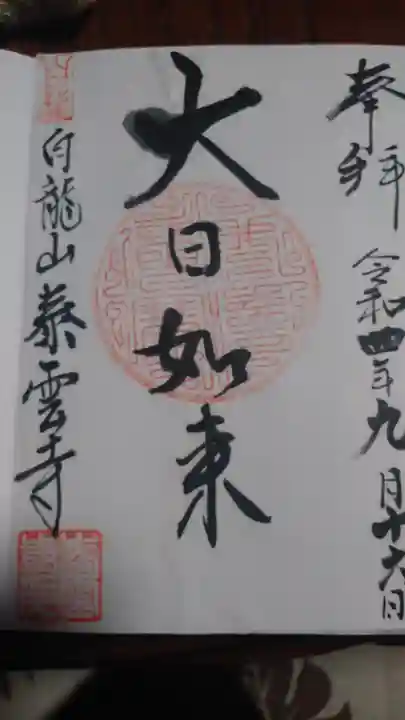 奉拝 令和四年九月十六日
大日如来
白龍山泰雲寺